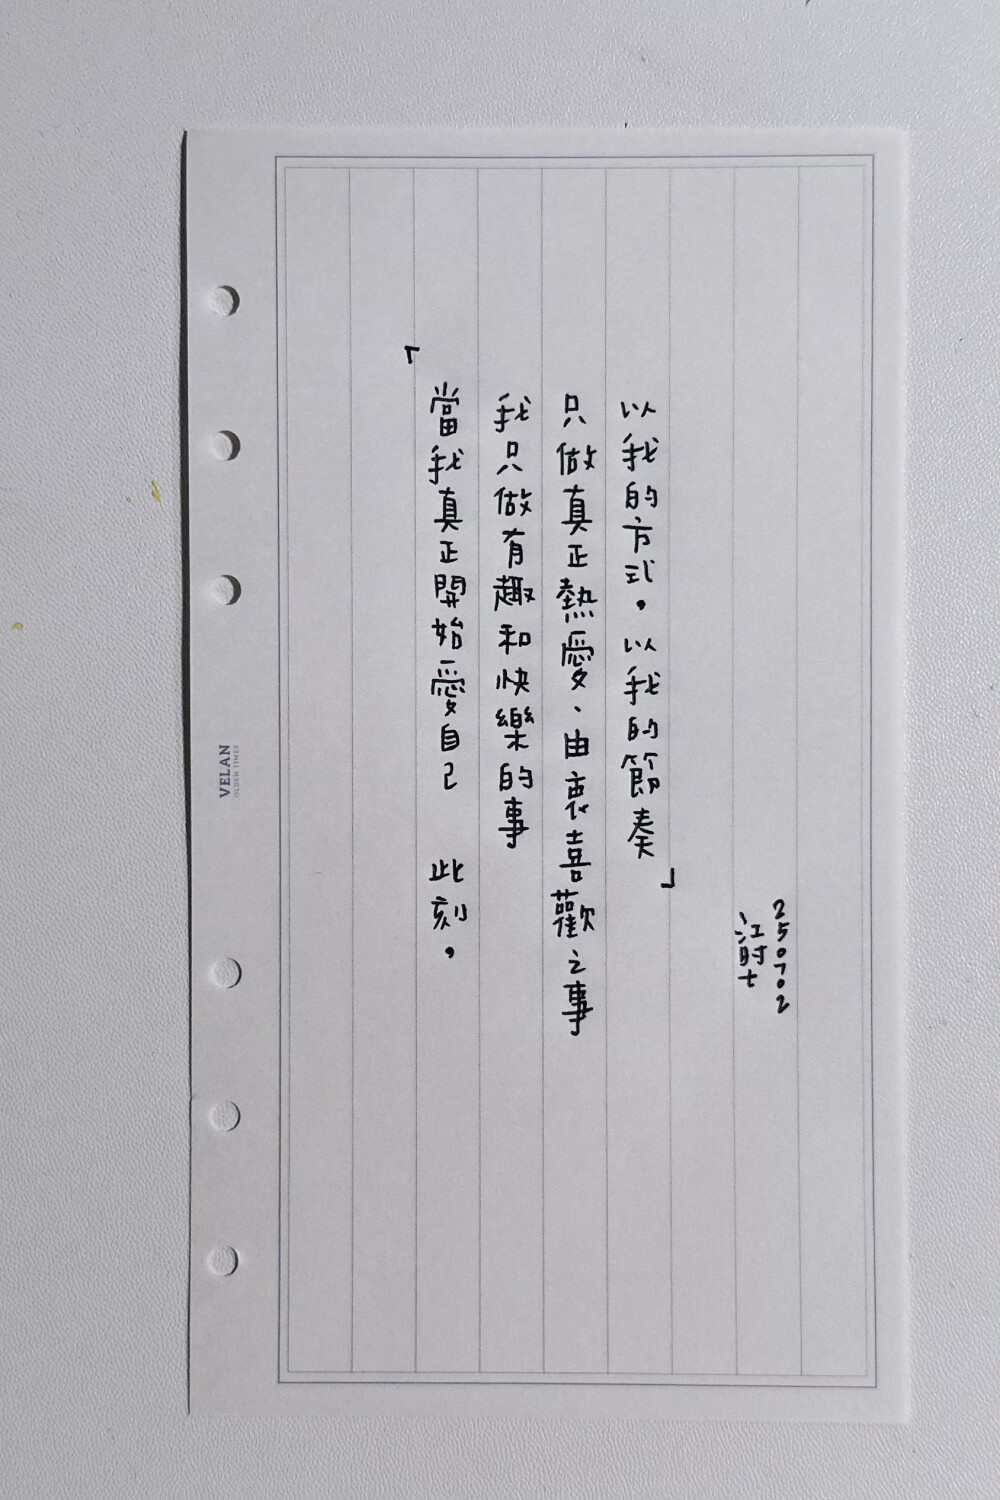 VELAN
「
當我真正開始愛自己 此刻，
我只做有趣和快樂的事
只做真正熱愛、由衷喜歡之事
以我的方式，以我的節奏」
江时七
250702